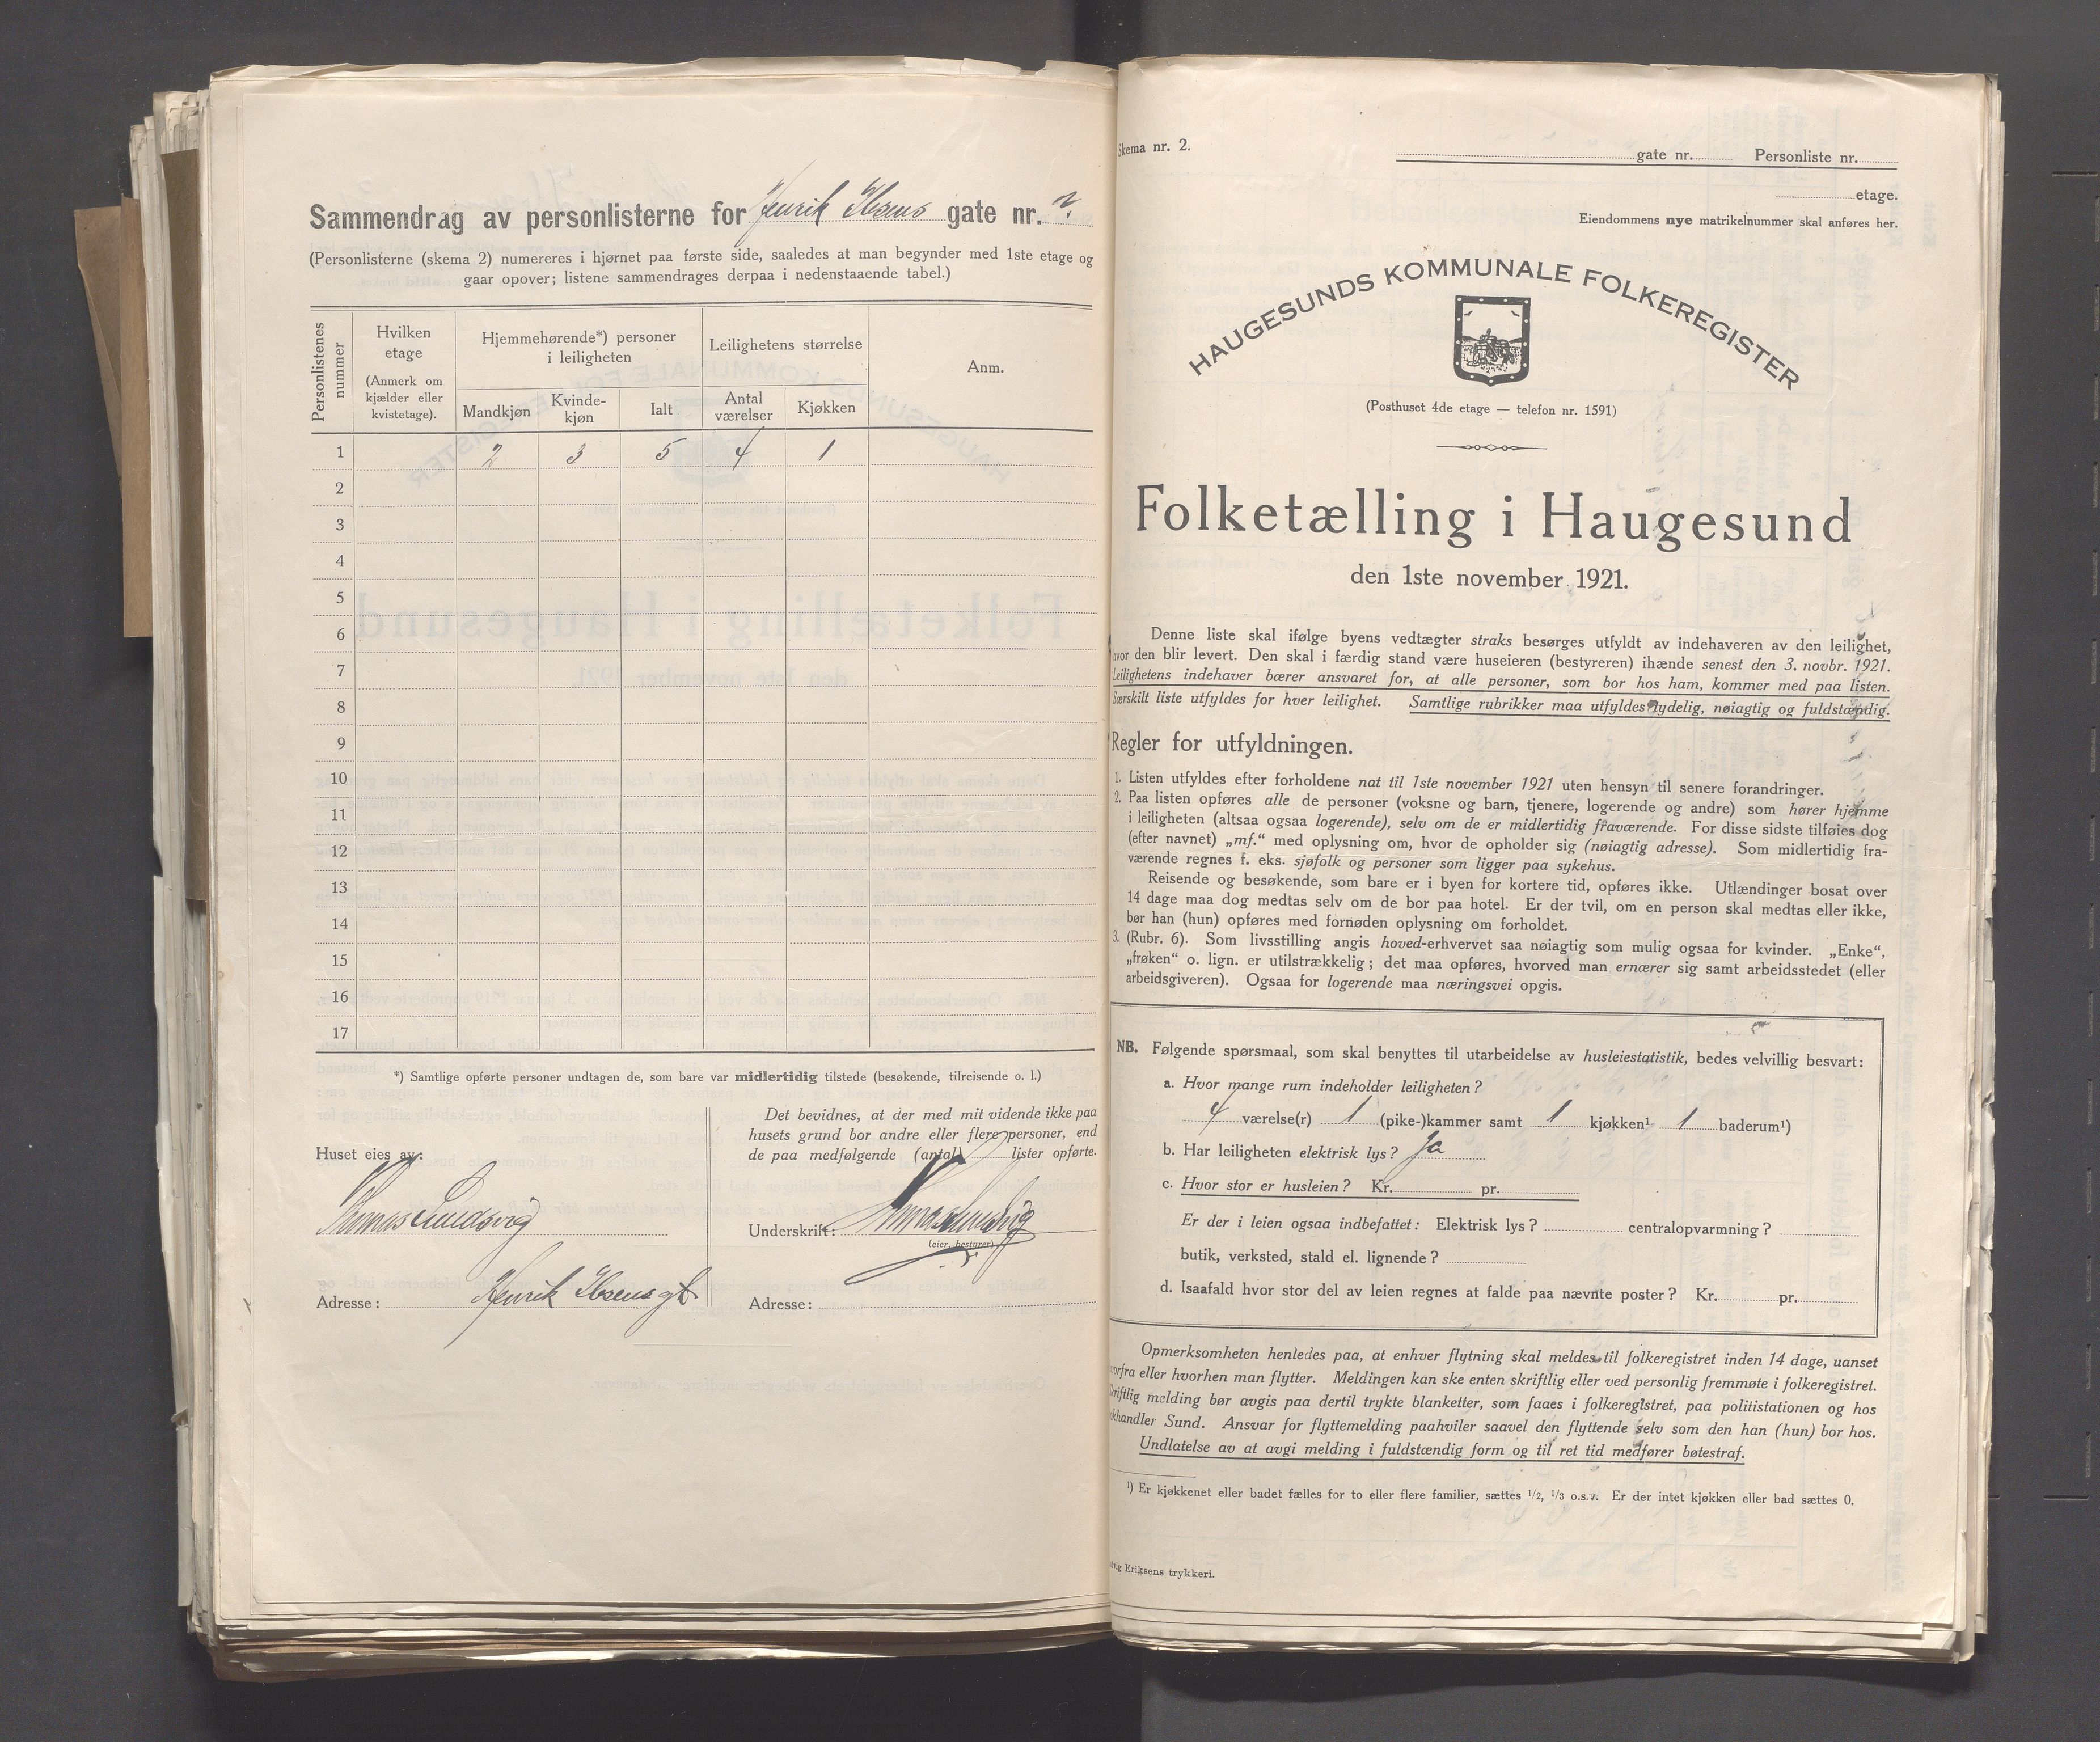 Sammendrag av personlisterne for Henrik Ibsens gate nr. 2.
(Personlisterne (skema 2) numereres i hjørnet paa første side, saaledes at man begynder med 1ste etage og
gaar opover; listene sammendrages derpaa i nedenstaaende tabel.)
Personlistenes nummer
Hvilken etage (Anmerk om kjælder eller kvistetage).
Hjemmehørende*) personer i leiligheten
Leilighetens størrelse
Anm.
Mandkjøn Kvindekjøn Ialt Antal værelser Kjøkken
1 2 3 5 4 1
2
3
4
5
6
7
8
9
10
11
12
13
14
15
16
17
*) Samtlige opførte personer undtagen de, som bare var midlertidig tilstede (besøkende, tilreisende o. l.)
Huset eies av:
Thomas Sundsvig
Adresse: Henrik Ibsens gt
Det bevidnes, at der med mit vidende ikke paa
husets grund bor andre eller flere personer, end
de paa medfølgende (antal) lister opførte.
Underskrift: Thomas Sundsvig
(eier, bestyrer)
Adresse:
Skema nr. 2.
gate nr. Personliste nr.
etage.
Eiendommens nye matrikelnummer skal anføres her.
HAUGESUNDS KOMMUNALE FOLKEREGISTER
(Posthuset 4de etage — telefon nr. 1591)
Folketælling i Haugesund
den 1ste november 1921.
Denne liste skal ifølge byens vedtægter straks besørges utfyldt av indehaveren av den leilighet,
hvor den blir levert. Den skal i færdig stand være huseieren (bestyreren) ihænde senest den 3. novbr. 1921.
Leilighetens indehaver bærer ansvaret for, at alle personer, som bor hos ham, kommer med paa listen.
Særskilt liste utfyldes for hver leilighet. Samtlige rubrikker maa utfyldes tydelig, nøiagtig og fuldstændig.
Regler for utfyldningen.
1. Listen utfyldes efter forholdene nat til 1ste november 1921 uten hensyn til senere forandringer.
2. Paa listen opføres alle de personer (voksne og barn, tjenere, logerende og andre) som hører hjemme
i leiligheten (altsaa ogsaa logerende), selv om de er midlertidig fraværende. For disse sidste tilføies dog
(efter navnet) „mf.“ med oplysning om, hvor de opholder sig (nøiagtig adresse). Som midlertidig fra-
værende regnes f. eks. sjøfolk og personer som ligger paa sykehus.
Reisende og besøkende, som bare er i byen for kortere tid, opføres ikke. Utlændinger bosat over
14 dage maa dog medtas selv om de bor paa hotel. Er der tvil, om en person skal medtas eller ikke,
bør han (hun) opføres med fornøden oplysning om forholdet.
3. (Rubr. 6). Som livsstilling angis hoved-erhvervet saa nøiagtig som mulig ogsaa for kvinder. „Enke“,
„frøken“ o. lign. er utilstrækkelig; det maa opføres, hvorved man ernærer sig samt arbeidsstedet (eller
arbeidsgiveren). Ogsaa for logerende maa næringsvei opgis.
NB. Følgende spørsmaal, som skal benyttes til utarbeidelse av husleiestatistik, bedes velvillig besvart:
a. Hvor mange rum indeholder leiligheten?
4 værelse(r) 1 (pike-)kammer samt 1 kjøkken¹ 1 baderum¹)
b. Har leiligheten elektrisk lys? Ja
c. Hvor stor er husleien? Kr. pr.
Er der i leien ogsaa indbefattet: Elektrisk lys? centralopvarmning?
butik, verksted, stald el. lignende?
d. Isaafald hvor stor del av leien regnes at falde paa nævnte poster? Kr. pr.
Opmerksomheten henledes paa, at enhver flytning skal meldes til folkeregistret inden 14 dage, uanset
orfra eller hvorhen man flytter. Meldingen kan ske enten skriftlig eller ved personlig fremmøte i folkeregistret.
kriftlig melding bør avgis paa dertil trykte blanketter, som faaes i folkeregistret, paa politistationen og hos
okhandler Sund. Ansvar for flyttemelding paahviler saavel den flyttende selv som den han (hun) bor hos.
Undlatelse av at avgi melding i fuldstændig form og til ret tid medfører bøtestraf.
¹) Er kjøkkenet eller badet fælles for to eller flere familier, sættes ½, ⅓ o.s.v. Er der intet kjøkken eller bad sættes 0.
Eriksens trykkeri.